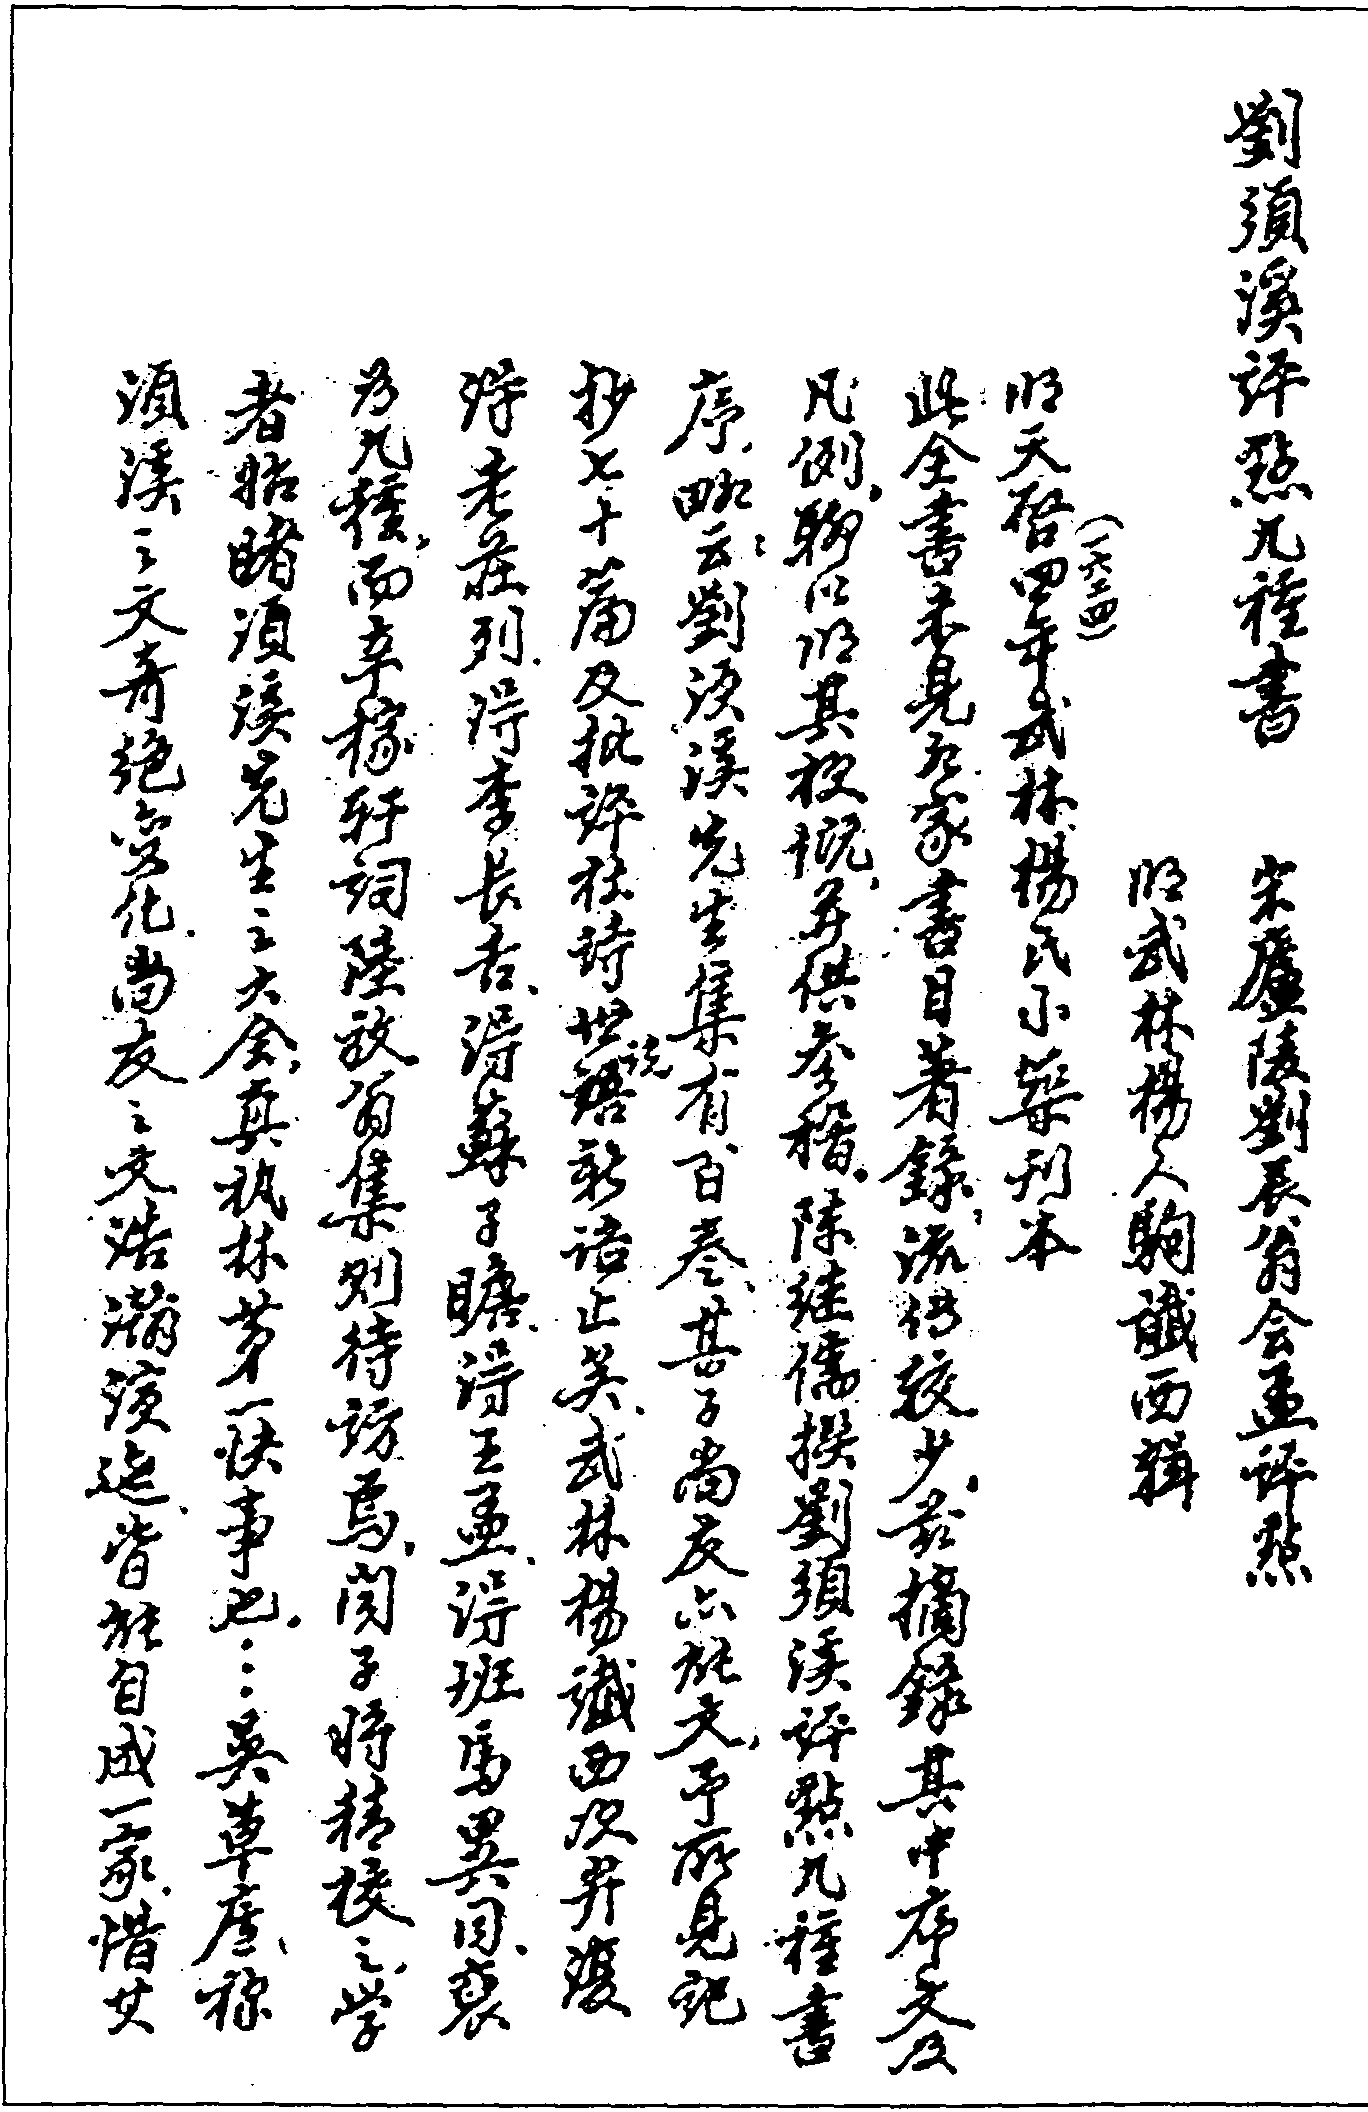 劉須溪評點九種書
宋廬陵劉辰翁会孟評點
明武林楊人駒讖西輯
明天启四年(一六二四)武林楊氏小築刊本
此全書未見各家書目著錄,流传较少,兹摘錄其中序文及
凡例,聊以明其梗概,并供参稽。陈继儒撰劉須溪評點九種書
序,略云:劉須溪先生集有百卷、其子尚友亦能文,予所見記
抄七十篇及批評杜詩世說新语止矣、武林楊讖西次弟復
得老莊列、得李長吉、得蘇子瞻、得王孟、得班馬異同、裒
为九種,而辛稼轩詞陸放翁集则待訪焉,閱子將精校之,学
者始睹須溪先生之大全,真秇林第一快事也。…吳草廬、称
須溪之文奇絶变化、尚友之文浩瀚演迤、皆能自成一家、惜其